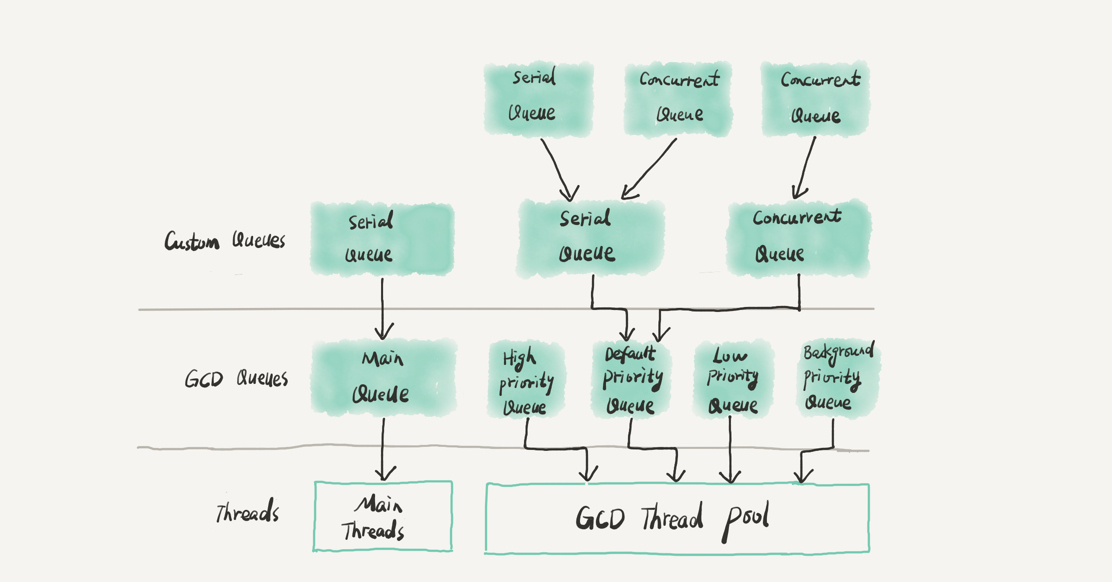 Serial
Queue
Concurrent
Queue
Concurrent
Queue
Custom Queues
Serial
Queue
Serial
Queue
Concurrent
Queue
GCD Queues
Main
Queue
High
priority
Queue
Default
priority
Queue
Low
Priority
Queue
Background
priority
Queue
Threads
Main
Threads
GCD Thread Pool